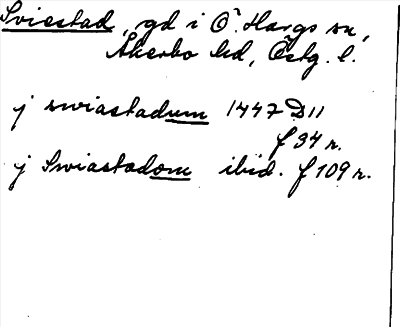 Sviestad, gd i Ö. Hargs sn,
Åkerbo hd, Östg. l.
j swiastadum 1447 D 11
f 94 r.
j Swiastadom ibid. f 109 r.